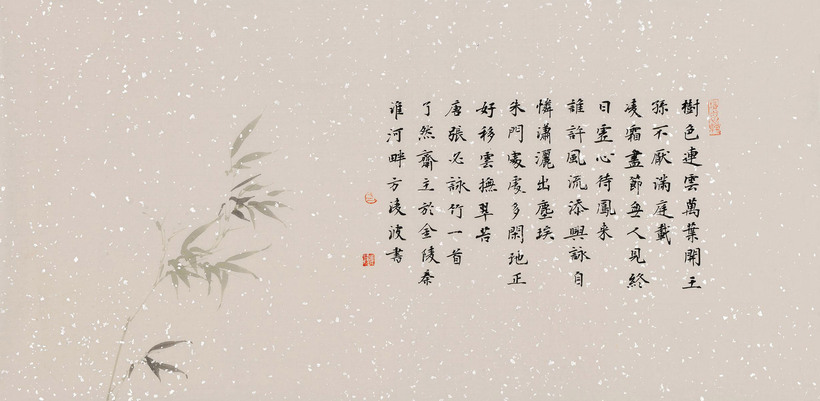 樹色連雲萬葉開王
孫不厭滿庭栽
淩霜盡節無人見終
日虛心待鳳来
誰許風流添興詠自
憐瀟灑出塵埃
朱門處處多閑地正
好移雲撫翠苔
唐張必詠竹一首
了然齋主於金陵秦
淮河畔方淩波書